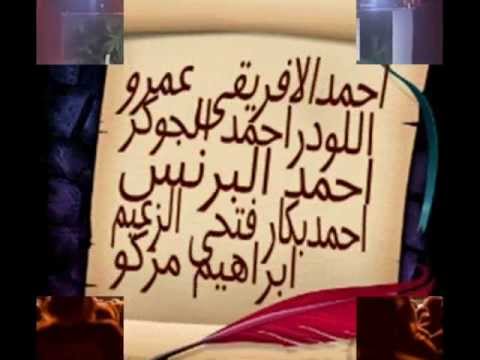 احمدالافريقي عمرو
اللودر احمد الجوكر
احمد البرنس
احمدبكار فتحى الزعيم
ابراهيم مزكو